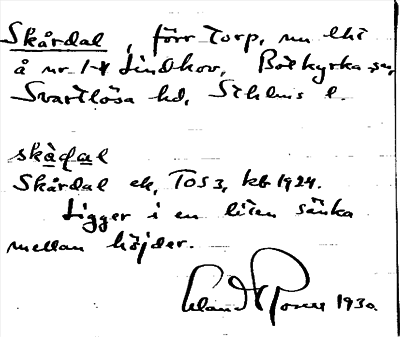 Skårdal, förr Torp, nu lht
å nr 1-4 Lindhov, Botkyrka sn,
Svartlösa hd, Sthlms l.
skàḍal
Skårdal ek, TOS 3, kb 1924.
Ligger i en liten sänka
mellan höjder.
1930.